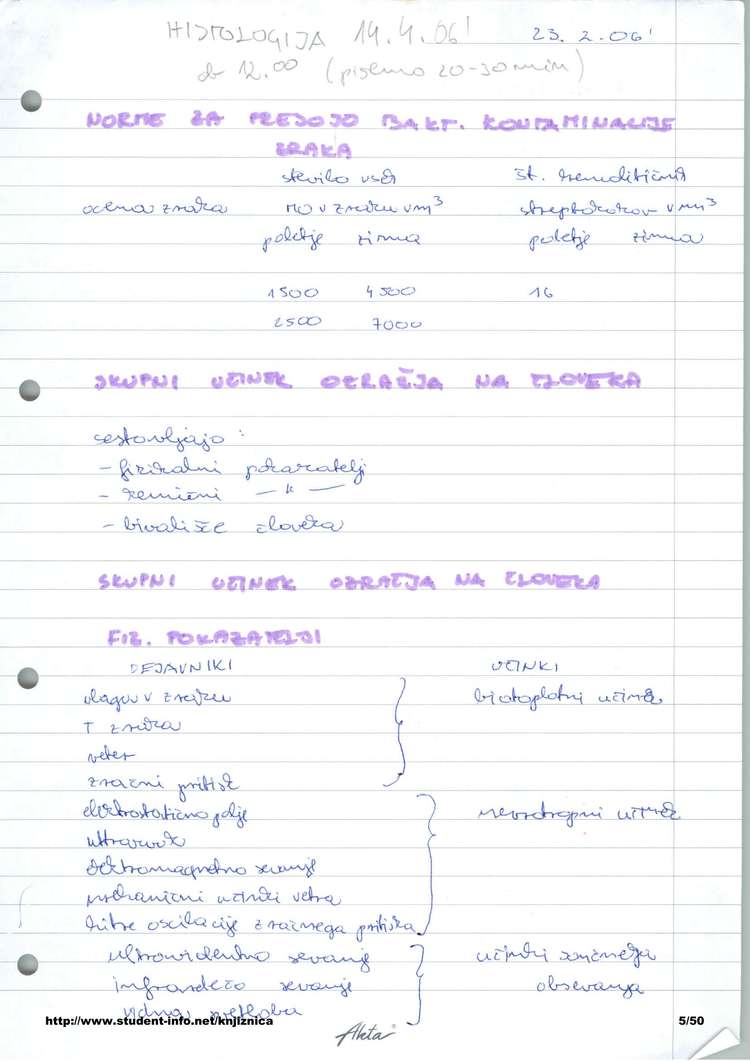 HISTOLOGIJA 14.4.06! 23.2.06!
ob 12.00 (pisemo 20-30 min)
NORME ZA PRESOJO BAKT. KONTAMINACIJE
ZRAKA
število vseh št. hemolitičnih
ocena zraka MO v zraku v m³ streptokokov v m³
poletje zima poletje zima
1500 4500 16
2500 7000
SKUPNI UČINEK OZRAČJA NA ČLOVEKA
sestavljajo :
- fizikalni pokazatelji
- kemični — " —
- bivališče človeka
SKUPNI UČINEK OZRAČJA NA ČLOVEKA
FIZ. POKAZATELJI
DEJAVNIKI UČINKI
vlaga v zraku biotoplotni učinek
T zraka
veter
zračni pritisk
elektrostatično polje nevrotropni učinek
ultrazvok
elektromagnetno sevanje
mehanični učinki vetra
hitre oscilacije zračnega pritiska
ultravidentno sevanje učinki sončnega
infrardečo sevanje obsevanja
vidna svetloba
http://www.student-info.net/knjiznica 5/50
Akta